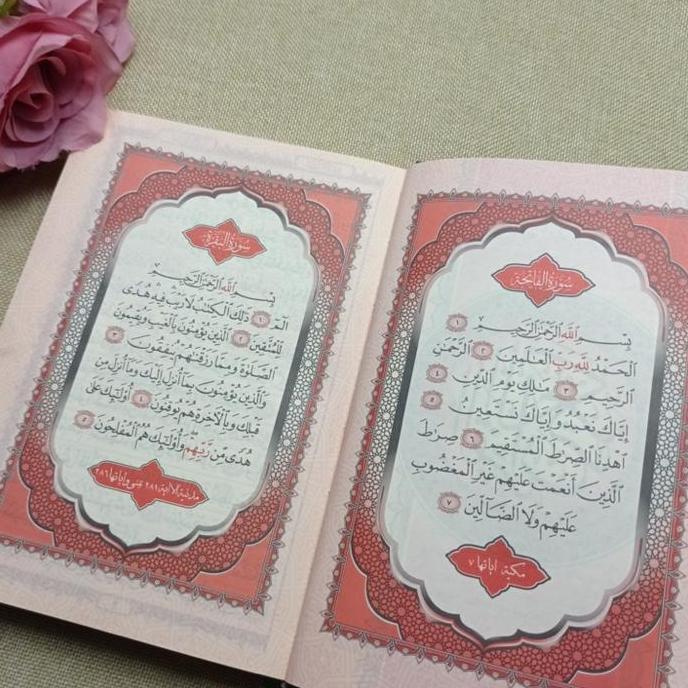 سورة الفاتحة
بِسْمِ اللَّهِ الرَّحْمَٰنِ الرَّحِيمِ ١
الْحَمْدُ لِلَّهِ رَبِّ الْعَالَمِينَ ٢ الرَّحْمَٰنِ
الرَّحِيمِ ٣ مَالِكِ يَوْمِ الدِّينِ ٤
إِيَّاكَ نَعْبُدُ وَإِيَّاكَ نَسْتَعِينُ ٥
اهْدِنَا الصِّرَاطَ الْمُسْتَقِيمَ ٦ صِرَاطَ
الَّذِينَ أَنْعَمْتَ عَلَيْهِمْ غَيْرِ الْمَغْضُوبِ
عَلَيْهِمْ وَلَا الضَّالِّينَ ٧
مكية اياتها ٧
سورة البقرة
بِسْمِ اللَّهِ الرَّحْمَٰنِ الرَّحِيمِ
الٓمٓ ١ ذَٰلِكَ الْكِتَابُ لَا رَيْبَ فِيهِ هُدًى
لِلْمُتَّقِينَ ٢ الَّذِينَ يُؤْمِنُونَ بِالْغَيْبِ وَيُقِيمُونَ
الصَّلَوٰةَ وَمِمَّا رَزَقْنَاهُمْ يُنْفِقُونَ ٣
وَالَّذِينَ يُؤْمِنُونَ بِمَا أُنْزِلَ إِلَيْكَ وَمَا أُنْزِلَ مِنْ
قَبْلِكَ وَبِالْآخِرَةِ هُمْ يُوقِنُونَ ٤ أُولَٰئِكَ عَلَىٰ
هُدًى مِنْ رَبِّهِمْ وَأُولَٰئِكَ هُمُ الْمُفْلِحُونَ ٥
مدنية الا اية ٢٨١ فبمنى واياتها ٢٨٦